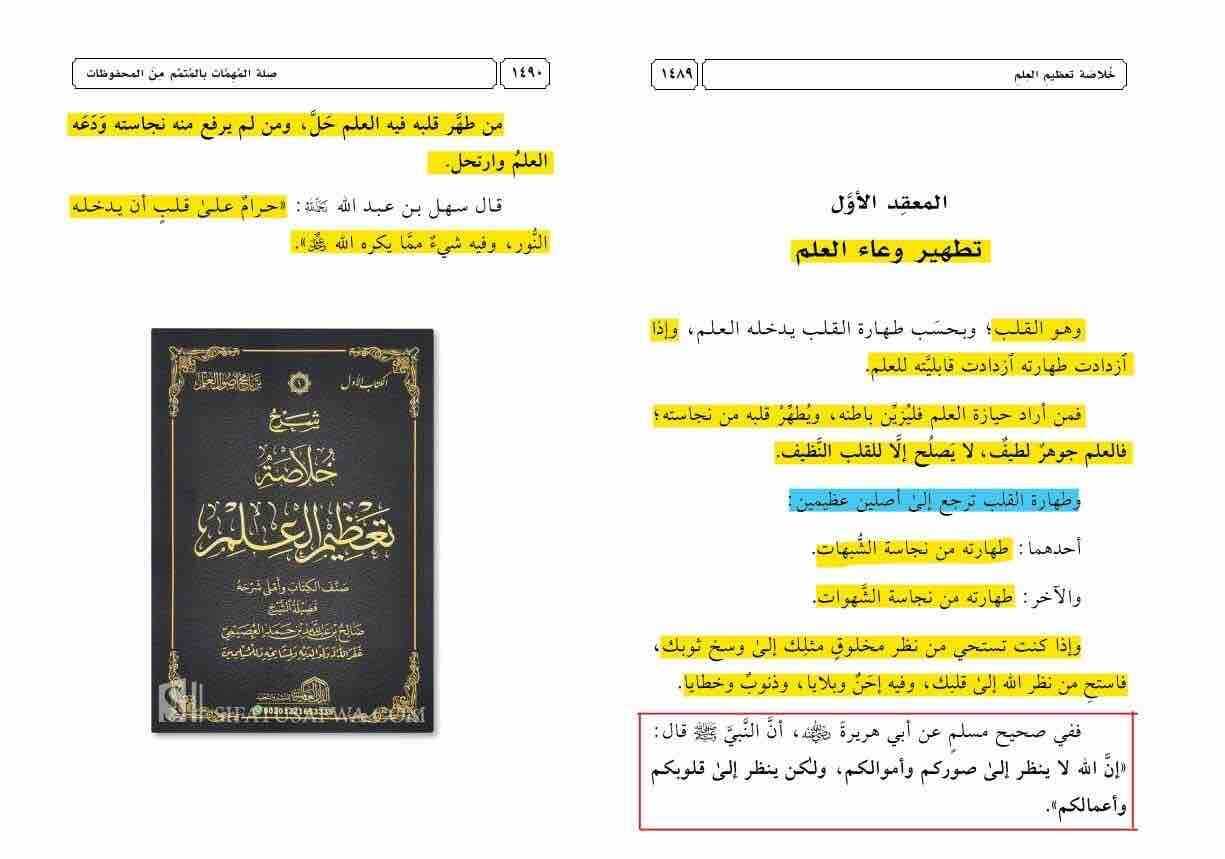 خُلاصة تعظيم العلم
١٤٨٩
المعقِد الأوَّل
تطهير وعاء العلم
وهو القلب؛ وبحسَب طهارة القلب يدخله العلم، وإذا
ٱزدادت طهارته ٱزدادت قابليَّته للعلم.
فمن أراد حيازة العلم فليُزيِّن باطنه، ويُطهِّرْ قلبه من نجاسته؛
فالعلم جوهرٌ لطيفٌ، لا يَصلُح إلَّا للقلب النَّظيف.
وطهارة القلب ترجع إلىٰ أصلين عظيمين:
أحدهما: طهارته من نجاسة الشُّبهات.
والآخر: طهارته من نجاسة الشَّهوات.
وإذا كنت تستحي من نظر مخلوقٍ مثلِك إلىٰ وسخ ثوبك،
فاستحِ من نظر الله إلىٰ قلبك، وفيه إحَنٌ وبلايا، وذنوبٌ وخطايا.
ففي صحيح مسلمٍ عن أبي هريرةَ رضي الله عنه، أنَّ النَّبيَّ ﷺ قال:
«إنَّ الله لا ينظر إلىٰ صوركم وأموالكم، ولٰكن ينظر إلىٰ قلوبكم
وأعمالكم».
١٤٩٠
صلة المُهمَّات بالمُتمِّم من المحفوظات
من طهَّر قلبه فيه العلم حَلَّ، ومن لم يرفع منه نجاسته وَدَعَه
العلمُ وارتحل.
قال سهل بن عبد الله رحمه الله: «حرامٌ علىٰ قلبٍ أن يدخله
النُّور، وفيه شيءٌ ممَّا يكره الله عز وجل».
الكتاب الأول
١
برنامج أصول العلم
شرح
خُلاصة
تعظيم العلم
صنف الكتاب وأملى شرحه
فضيلة الشيخ
صالح بن عبد الله بن حمد العصيمي
غفر الله له ولوالديه ولمشايخه وللمسلمين
SIFATUSAFWA.COM